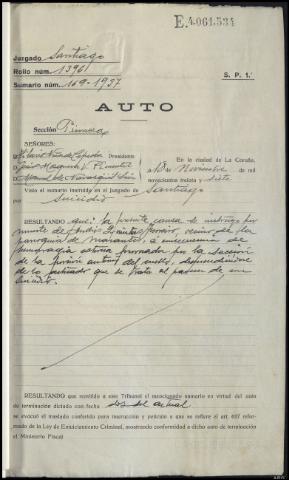 E.4.061.534
Juzgado Santiago
Rollo núm. 1396
Sumario núm. 169-1937
S. P. 1.ª
AUTO
Sección Primera
SEÑORES:
Presidente
En la ciudad de La Coruña,
a 13 de Noviembre de mil
novecientos treinta y siete
Visto el sumario instruido en el Juzgado de Santiago
por suicidio
RESULTANDO que: la presente causa se instruyó por
muerte de Andrés vecino de la
parroquia de a consecuencia de
hemorragia externa provocada por la sección
de la del cuello, desprendiéndose
de lo actuado que se trata al parecer de un
suicidio.
RESULTANDO que remitido a este Tribunal el mencionado sumario en virtud del auto
de terminación dictado con fecha dos del actual
se evacuó el traslado conferido para instrucción y petición a que se refiere el art. 627 refor-
mado de la Ley de Enjuiciamiento Criminal, mostrando conformidad a dicho auto de terminación
el Ministerio Fiscal